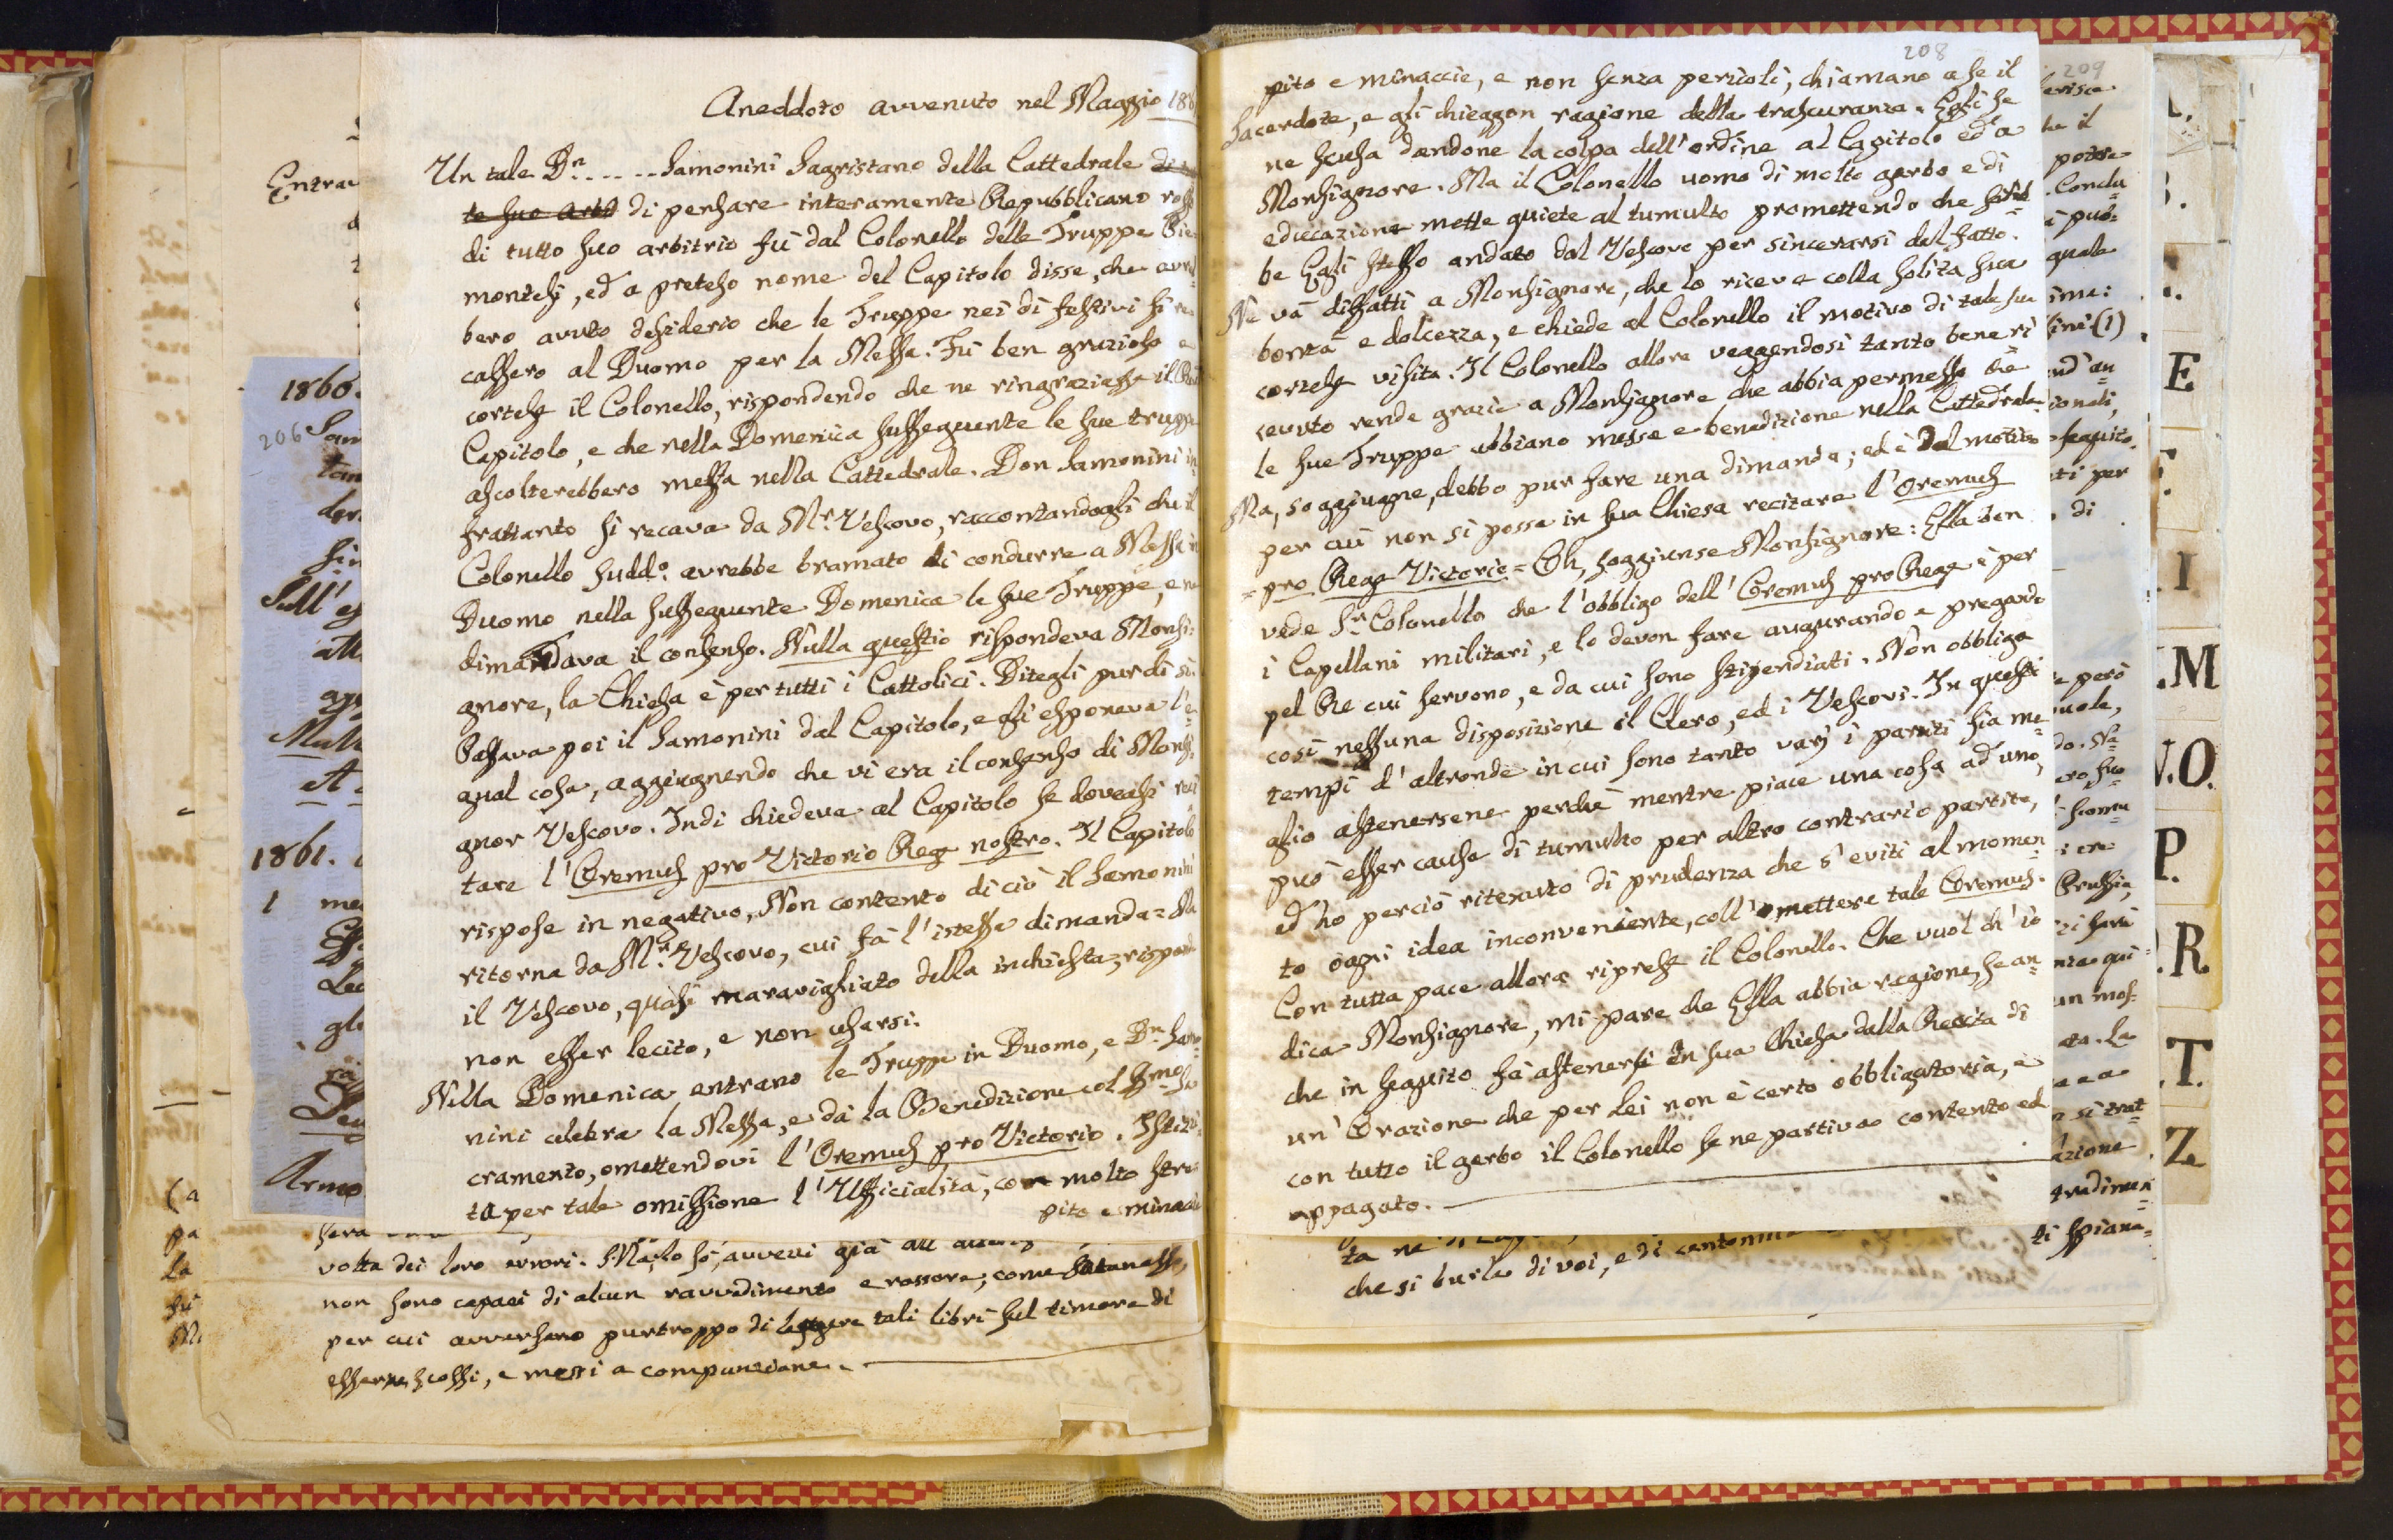 Aneddoto avvenuto nel Maggio 186
Un tale Dn. ..... Samonini Sagristano della Cattedrale
te suo arbit di pensare interamente Repubblicano
di tutto suo arbitrio fù dal Colonello delle Truppe Pie
montesi, ed a preteso nome del Capitolo disse, che avreb
bero avuto desiderio che le Truppe nei dì festivi si re
cassero al Duomo per la Messa. Fù ben grazioso e
cortese il Colonello, rispondendo che ne ringraziasse il
Capitolo, e che nella Domenica susseguente le sue truppe
ascolterebbero messa nella Cattedrale. Don Samonini in
frattanto si recava da Mr. Vescovo, raccontandogli che il
Colonello sudd.o avrebbe bramato di condurre a Messa in
Duomo nella susseguente Domenica le sue Truppe, e ne
dimandava il consenso. Nulla questio rispondeva Monsi=
gnore, la Chiesa è per tutti i Cattolici. Ditegli pur di sì.
Passava poi il Samonini dal Capitolo, e gli esponeva l'e=
gual cosa, aggiugnendo che vi era il consenso di Monsi=
gnor Vescovo. Indi chiedeva al Capitolo se doveasi reci
tare l'Oremus pro Victorio Rege nostro. Il Capitolo
rispose in negativo, Non contento di ciò il Samonini
ritorna da Mr. Vescovo, cui fà l'istessa dimanda = Ma
il Vescovo, quasi maravigliato della inchiesta, risponde
non esser lecito, e non usarsi.
Nella Domenica entrano le Truppe in Duomo, e Dn. Samo=
nini celebra la Messa, e dà la Benedizione col SSmo Sa
cramento, omettendovi l'Oremus pro Victorio. Istizi=
ta per tale omissione l'Ufficialità, con molto stre=
pito e minacie
208
pito e minaccie, e non senza pericoli, chiamano a se il
Sacerdote, e gli chieggon ragione della trascuranza. Egli se
ne scusa dandone la colpa dell'ordine al Capitolo ed a
Monsignore. Ma il Colonello uomo di molto garbo e di
educazione mette quiete al tumulto promettendo che sareb=
be Egli stesso andato dal Vescovo per sincerarsi del fatto.
Ne và diffatti a Monsignore, che lo riceve colla solita sua
bontà e dolcezza, e chiede al Colonello il motivo di tale sua
cortese visita. Il Colonello allora veggendosi tanto bene ri
cevuto rende grazie a Monsignore che abbia permesso che
le sue Truppe abbiano messa e benedizione nella Cattedrale.
Ma, soggiugne, debbo pur fare una dimanda; ed è del motivo
per cui non si possa in sua Chiesa recitare l'Oremus
= pro Rege Victorio = Oh, soggiunse Monsignore: Ella ben
vede Sr. Colonello che l'obbligo dell'Oremus pro Rege è per
i Capellani militari, e lo devon fare augurando e pregando
pel Re cui servono, e da cui sono stipendiati. Non obbliga
così nessuna disposizione il Clero, ed i Vescovi. In questi
tempi d'altronde in cui sono tanto varj i partiti sia me=
glio astenersene perchè mentre piace una cosa ad uno,
può esser causa di tumulto per altro contrario partito,
ed ho perciò ritenuto di prudenza che s'eviti al momen
to ogni idea inconveniente, coll'omettere tale Oremus.
Con tutta pace allora riprese il Colonello. Che vuol ch'io
dica Monsignore, mi pare che Ella abbia ragione, se an=
che in seguito fà astenersi in sua Chiesa dalla Recita di
un'Orazione che per Lei non è certo obbligatoria, e
con tutto il garbo il Colonello se ne partiva contento ed
appagato.
volta dei loro errori. Ma, lo sò, avvezzi già
non sono capaci di alcun ravvedimento e rossore, come Satanasso,
per cui avversano purtroppo di leggere tali libri sul timore di
esserne scossi, e messi a compunzione.
che si burla di voi, e di
Entrav
1860.
206
Sull'
1861.
1
Armo
209
il
potre
quale
(1)
di
però
E
I
M
O.
P.
R.
T.
Z